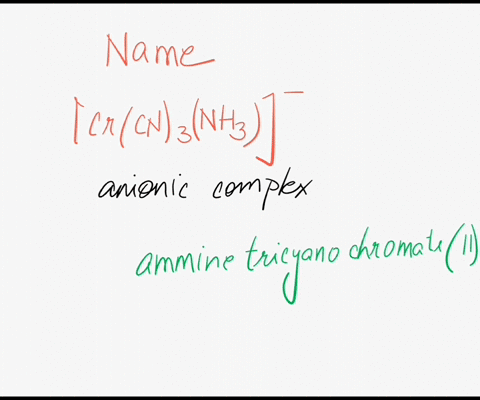 Name
[Cr(CN)3(NH3)]−
anionic complex
ammine tricyano chromate (II)